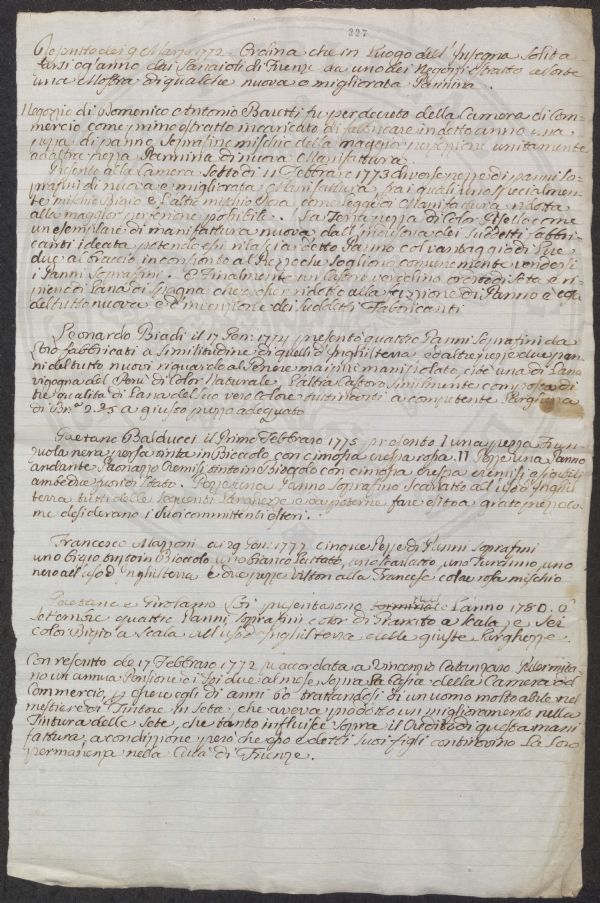 227
Rescritto dei 9 Marzo 1772. Ordina che in luogo dell'Insegna Solita
darsi ogn'anno dai Lanaioli di Firenze da uno dei Negozi Estratto a Sorte
una Mostra di qualche nuova o migliorata Pannina.
Negozio di Domenico e Antonio Baretti fu per decreto della Camera di Com=
mercio come primo estratto incaricato di fabbricare in detto anno una
pezza di panno Soprafine mischio della maggior perfezione unitamente
ad altra pezza Pannina di nuova Manifattura.
Presentò alla Camera sotto di 11 Febbraio 1773 diverse pezze di panni So=
prafini di nuova e migliorata Manifattura, frai quali uno specialmen=
te mischio Bigio e l'altre mischio come leggera Manifattura ridotta
alla maggior perfezione possibile. La Terza pezza di Color come
un esemplare di manifattura nuova dall'industria dei Suddetti fabbri=
canti ideata potendo chi rilascia detto Panno col vantaggio di Lire
due al braccio in confronto al Prezzo che sogliono comunemente vendersi
i Panni Soprafini. E Finalmente un Castoro verdolino ordito di Seta e ri=
pieno di Lana di Spagna che ridotto alla fazzione di Panno è cosa
del tutto nuova e d'invenzione dei Suddetti Fabbricanti
Leonardo Biadi il 17 Gen: 1774 presentò quattro Panni Soprafini da
Esso fabbricati a Similitudine di quelli d'Inghilterra, ed altre pezze due pan=
ni del tutto nuovi riguardo al Genere mai più manifatturato, cioè una di Lana
vigogna del Perù di Color Naturale, l'altra Castoro similmente composta di
tre qualità di Lana del suo vero colore a competente larghezza
di Br. 2.25 a giusto prezzo adeguato
Gaetano Balducci il Primo Febbraio 1775 presentò I una pezza
nera tinta in Bioccolo con cimosa crespa rossa. II Pezze una Panno
andante Paonazzo Cremisi tinto in Bioccolo con cimosa crespa cremisi
ambedue Pezze una Panno Soprafine Scarlatto all'uso d'Inghil=
terra tutti delle seguenti larghezze e da poterne fare esito a grato prezzo co=
me desiderano i suoi committenti esteri.
Francesco Mazzoni a 29 Gen: 1777 cinque Pezze di Panni Soprafini
uno bigio tinto in Bioccolo uno Bianco Lattato, uno Scarlatto uno Turchino uno
nero all'uso d'Inghilterra e due pezze alla Francese color rosa mischio
Gaetano e Girolamo presentarono l'anno 1780. a
Settembre quattro Panni Soprafini color di a Scala, e Sei
color Bigio a Scala all'uso d'Inghilterra delle giuste larghezze.
Con rescritto de 17 Febbraio 1772 fu accordata a Vincenzio Catanzaro Palermita=
no un annua Pensione di due al mese sopra la Cassa della Camera del
Commercio, e egli di anni 60 trattandosi di un uomo molto abile nel
mestiere di Tintore in Seta, che aveva prodotto un miglioramento nella
Tintura delle Sete, che tanto influisce sopra il Credito di questa mani
fattura, a condizione però che esso e detti suoi figli continovino la loro
permanenza nella Città di Firenze.